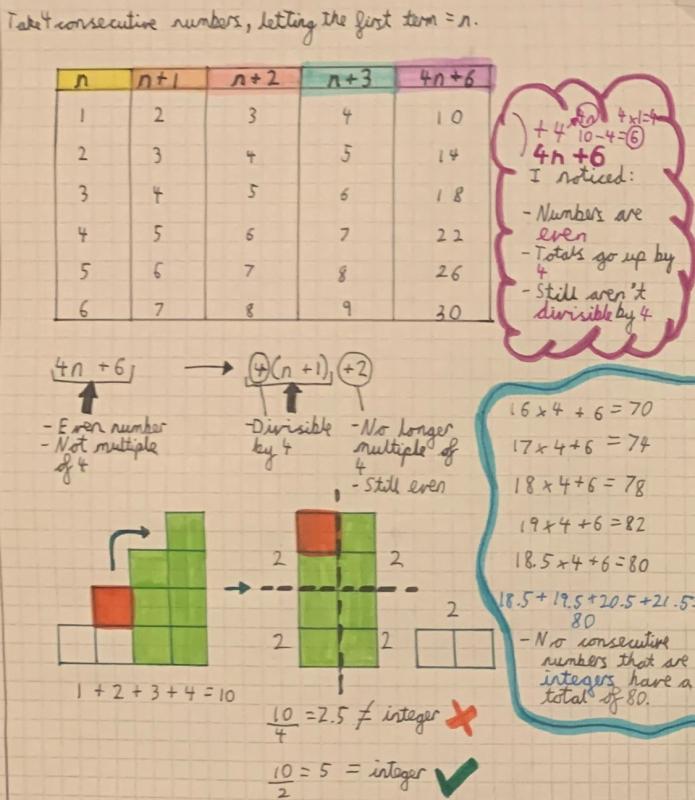 Take 4 consecutive numbers, letting the first term = n.
n n+1 n+2 n+3 4n+6
1 2 3 4 10
2 3 4 5 14
3 4 5 6 18
4 5 6 7 22
5 6 7 8 26
6 7 8 9 30
) +4 4n 4×1=4
10-4=6
4n+6
I noticed:
- Numbers are
even
- Totals go up by
4
- Still aren't
divisible by 4
4n +6 → 4(n+1) +2
- Even number
- Not multiple
of 4
- Divisible
by 4
- No longer
multiple of
4
- Still even
16 × 4 + 6 = 70
17 × 4 + 6 = 74
18 × 4 + 6 = 78
19 × 4 + 6 = 82
18.5 × 4 + 6 = 80
18.5 + 19.5 + 20.5 + 21.5 =
80
- No consecutive
numbers that are
integers have a
total of 80.
1 + 2 + 3 + 4 = 10
2 2
2 2
2
10/4 = 2.5 ≠ integer ✗
10/2 = 5 = integer ✓